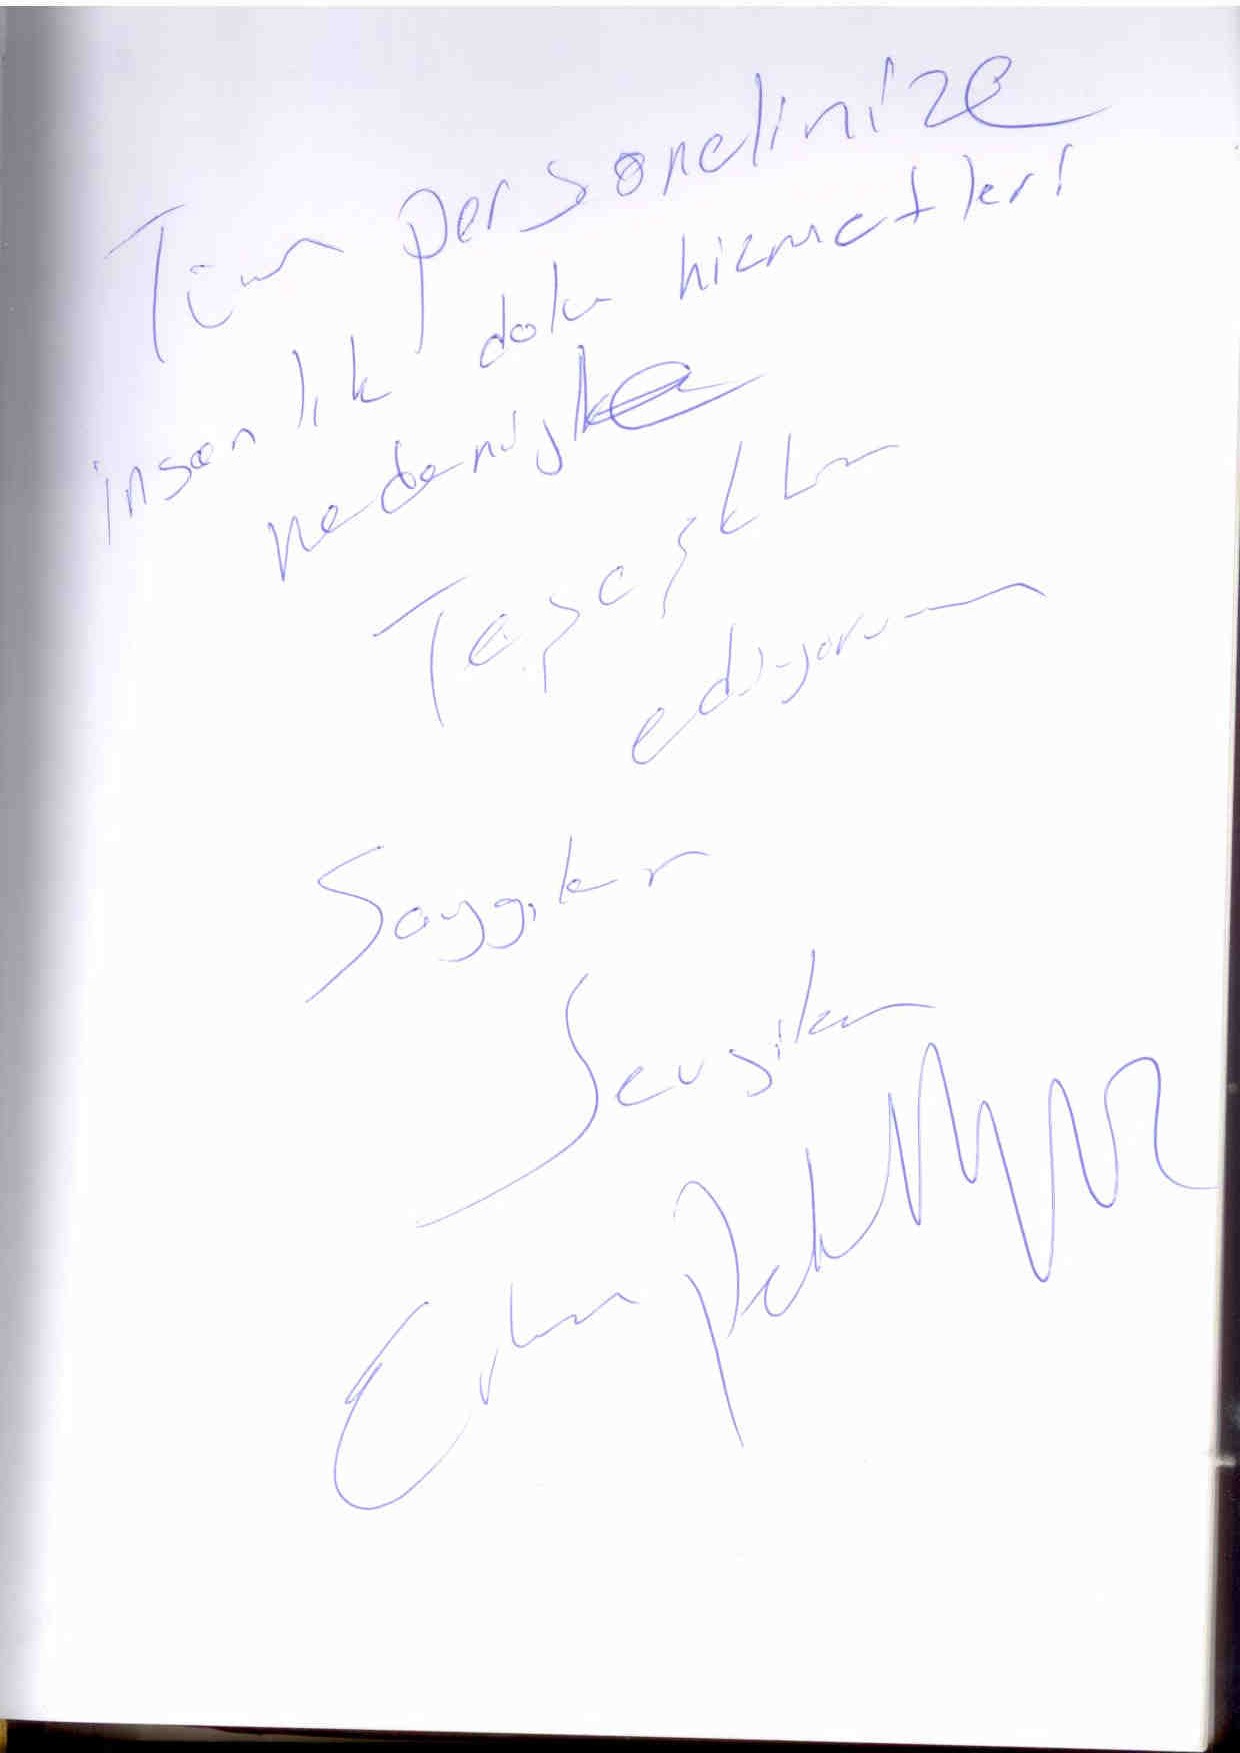 Tüm personelinize
insanlık dolu hizmetleri
nedeniyle
Teşekkür
ediyorum
Saygılar
Sevgiler